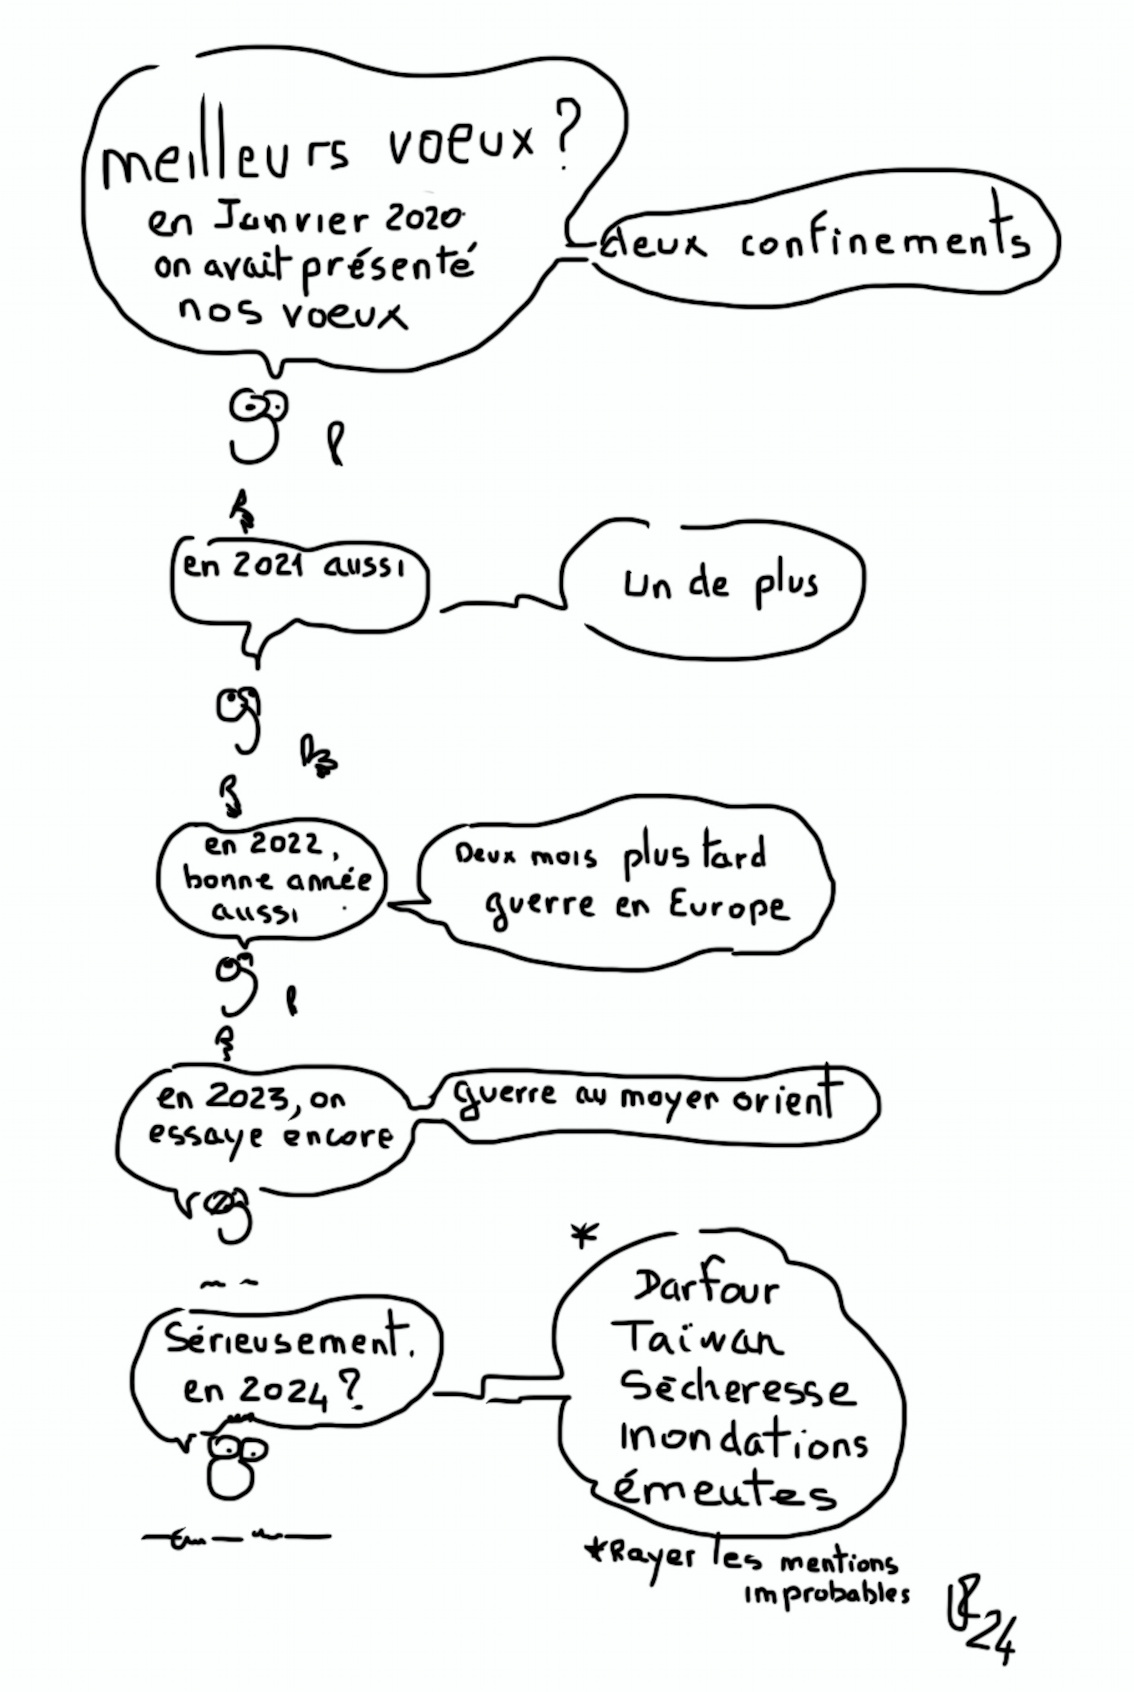 meilleurs voeux ?
en Janvier 2020
on avait présenté
nos voeux
deux confinements
en 2021 aussi
un de plus
en 2022,
bonne année
aussi
Deux mois plus tard
guerre en Europe
en 2023, on
essaye encore
guerre au moyen orient
Sérieusement.
en 2024 ?
*
Darfour
Taïwan
Sécheresse
inondations
émeutes
*Rayer les mentions
improbables
24